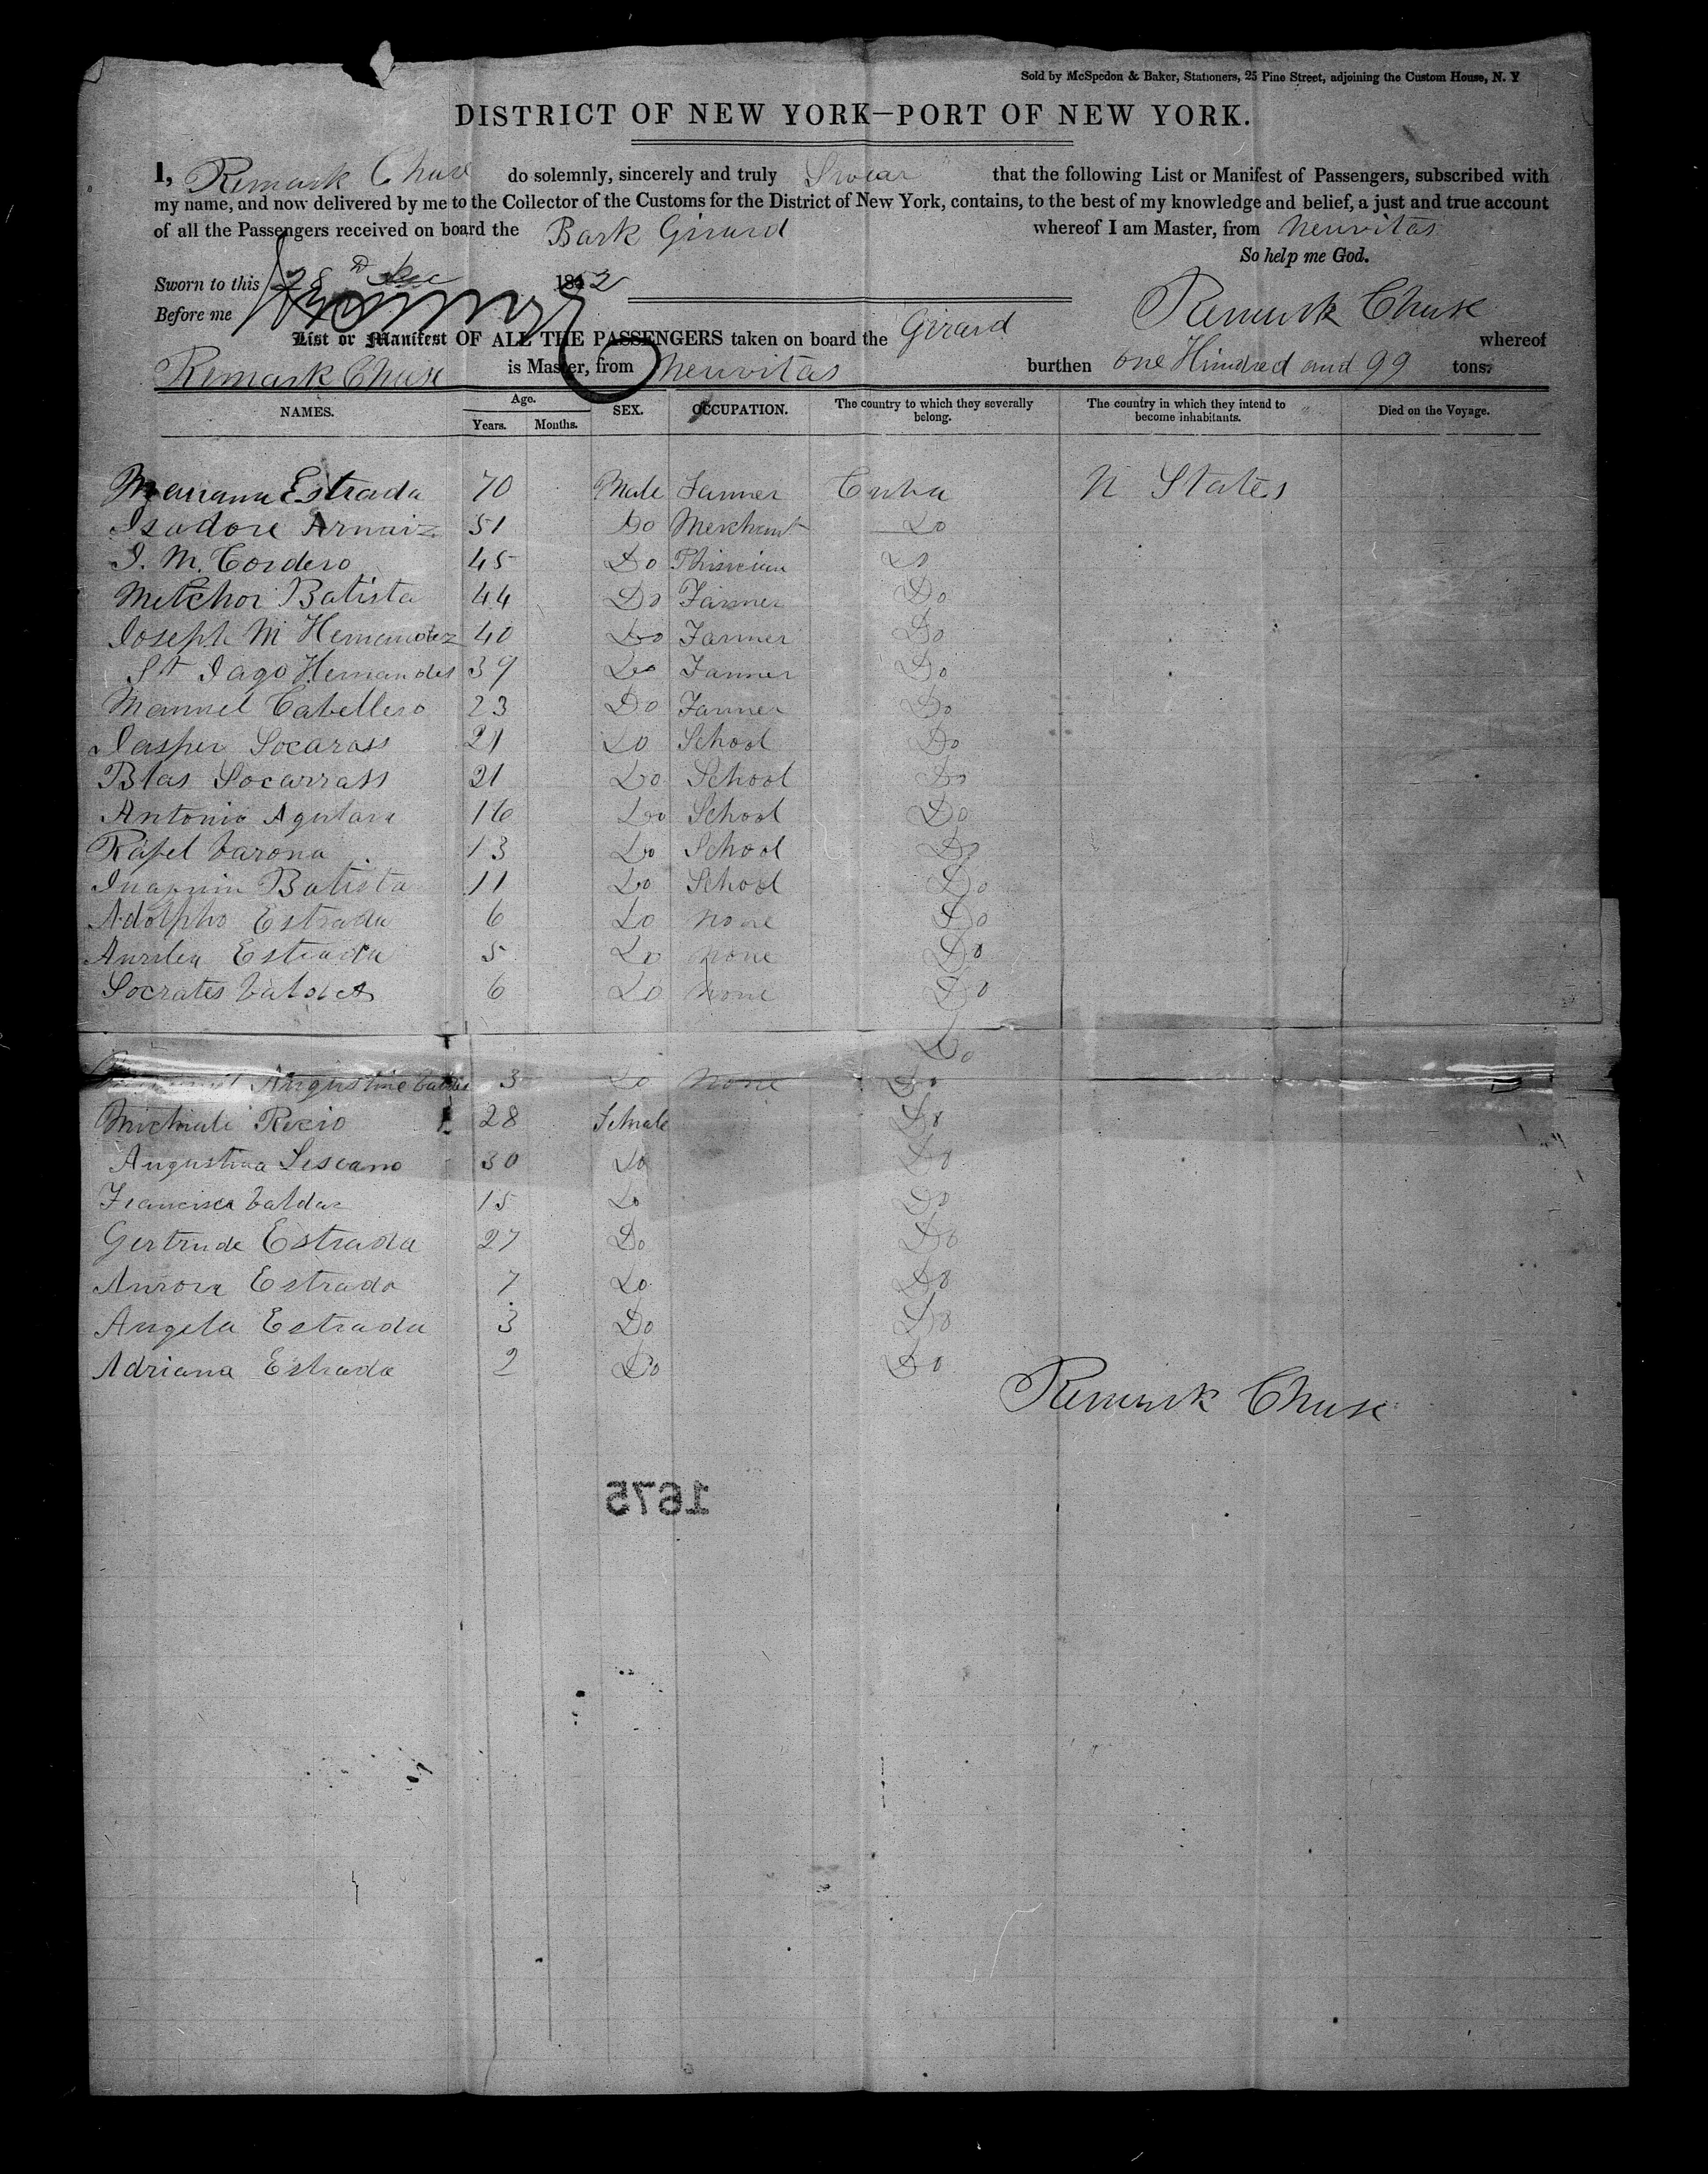 Sold by McSpedon & Baker, Stationers, 25 Pine Street, adjoining the Custom House, N. Y
DISTRICT OF NEW YORK—PORT OF NEW YORK.
I, Remark Chase do solemnly, sincerely and truly Swear that the following List or Manifest of Passengers, subscribed with
my name, and now delivered by me to the Collector of the Customs for the District of New York, contains, to the best of my knowledge and belief, a just and true account
of all the Passengers received on board the Bark Girard whereof I am Master, from Neuvitas
So help me God.
Sworn to this 28 Dec 1852
Before me
Remark Chase
List or Manifest OF ALL THE PASSENGERS taken on board the Girard whereof
Remark Chase is Master, from Neuvitas burthen one Hundred and 99 tons.
NAMES. Age. Years. Months. SEX. OCCUPATION. The country to which they severally belong. The country in which they intend to become inhabitants. Died on the Voyage.
Estrada 70 Male Farmer Cuba States
Isadore Arnaiz 51 Do Merchant Do
J. M. Cordero 45 Do Do
Melchor Batista 44 Do Farmer Do
Joseph M Hernandez 40 Do Farmer Do
St Iago Hernandes 39 Do Farmer Do
Manuel Cabellero 23 Do Farmer Do
Jasper Socarass 21 Do School Do
Blas Socarrass 21 Do School Do
Antonio 16 Do School Do
Rafel Varona 13 Do School Do
Batista 11 Do School Do
Adolpho Estrada 6 Do None Do
Estrada 5 Do None Do
Socrates Valdes 6 Do None Do
Do
Augustine Valdes 3 Do None Do
Recio 28 Female Do
Augustina Lescano 30 Do Do
Francisca Valdes 15 Do Do
Gertrude Estrada 27 Do Do
Aurora Estrada 7 Do Do
Angela Estrada 3 Do Do
Adriana Estrada 2 Do Do
Remark Chase
1675